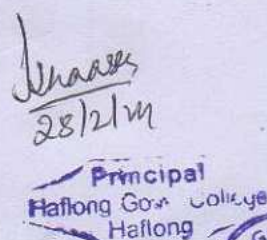 28/2/24
Principal
Haflong Gov. College
Haflong